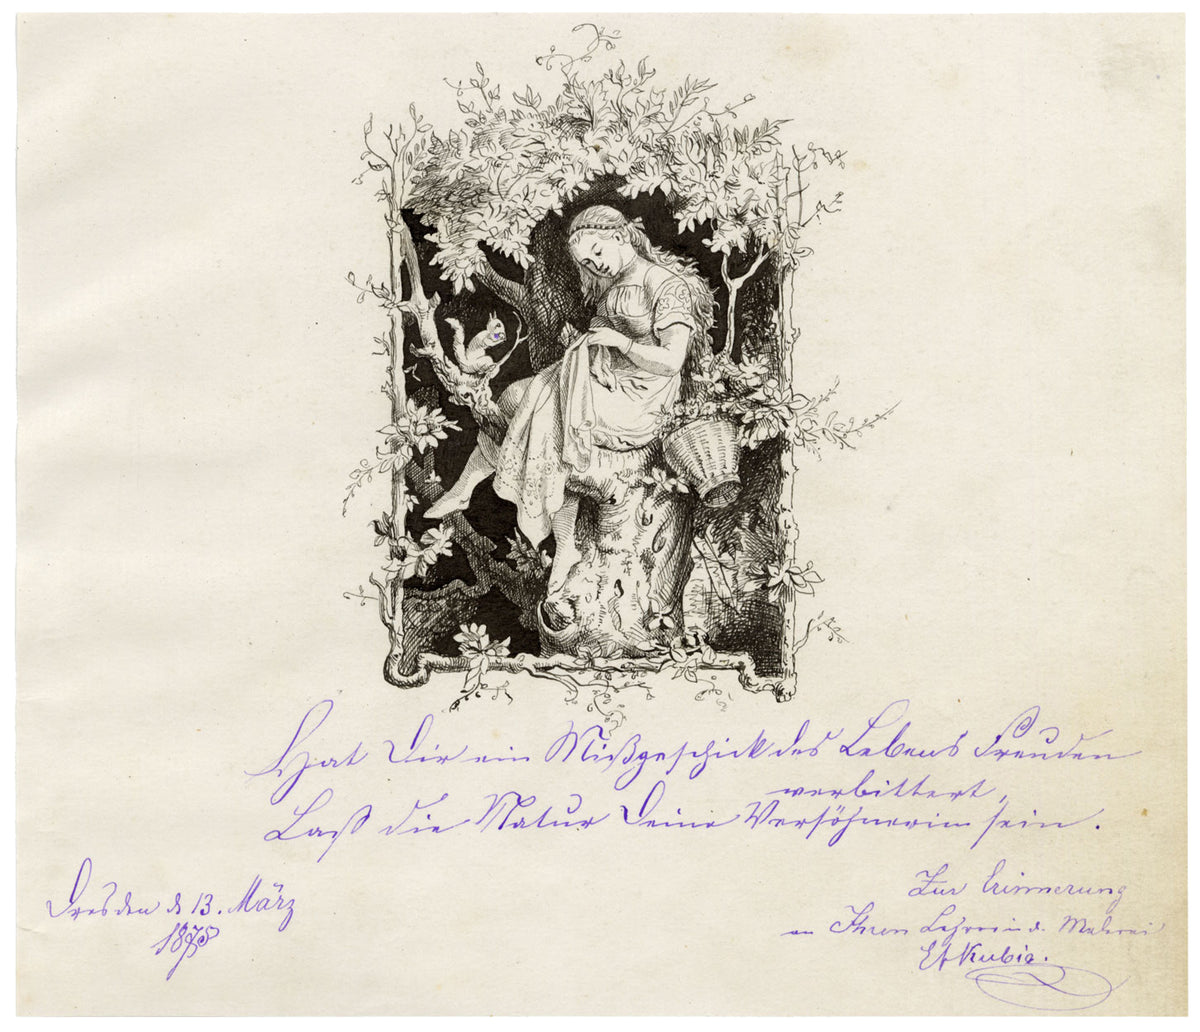 Hat Dir ein Mißgeschick des Lebens Freuden
verbittert,
Laß die Natur Deine Versöhnerin sein.
Dresden d 13. März
1875
Zur Erinnerung
an Ihren Lehrer in d. Malerei
Kubig.